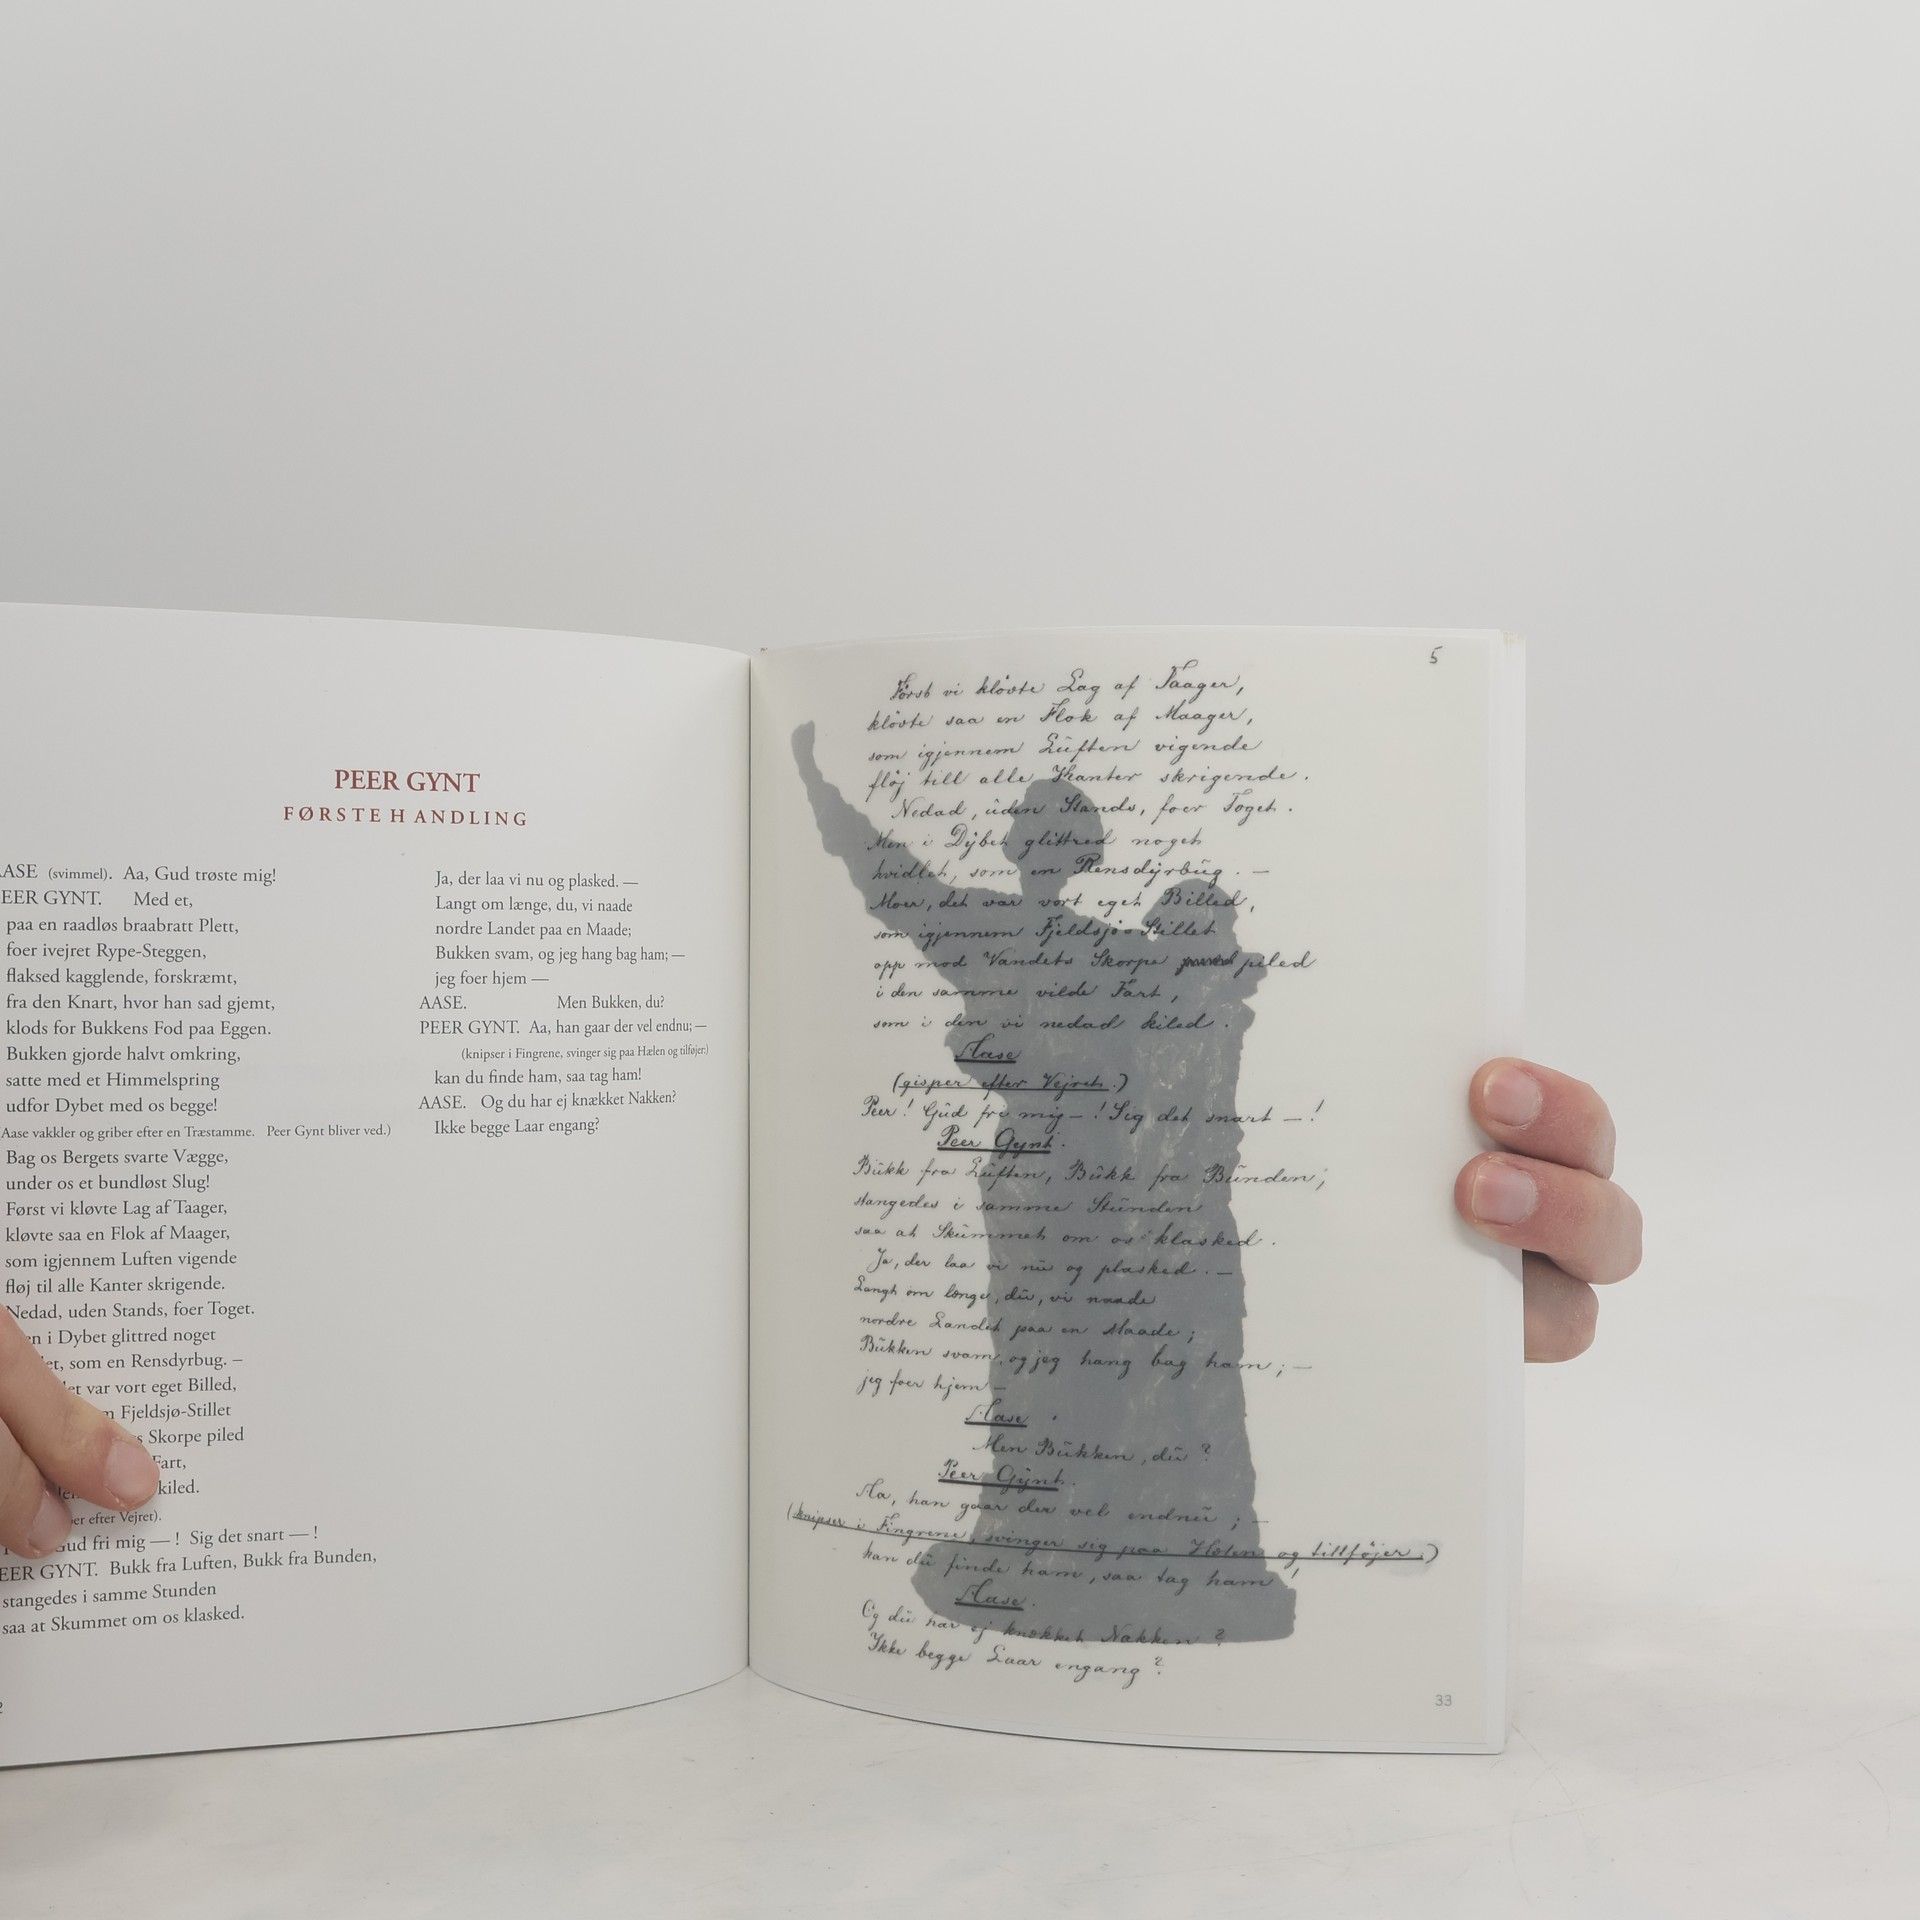 PEER GYNT
FØRSTE HANDLING
AASE (svimmel). Aa, Gud trøste mig!
PEER GYNT. Med et,
paa en raadløs braabratt Plett,
foer ivejret Rype-Steggen,
flaksed kagglende, forskræmt,
fra den Knart, hvor han sad gjemt,
klods for Bukkens Fod paa Eggen.
Bukken gjorde halvt omkring,
satte med et Himmelspring
udfor Dybet med os begge!
(Aase vakkler og griber efter en Træstamme. Peer Gynt bliver ved.)
Bag os Bergets svarte Vægge,
under os et bundløst Slug!
Først vi kløvte Lag af Taager,
kløvte saa en Flok af Maager,
som igjennem Luften vigende
fløj til alle Kanter skrigende.
Nedad, uden Stands, foer Toget.
i Dybet glittred noget
som en Rensdyrbug. –
var vort eget Billed,
Fjeldsjø-Stillet
Skorpe piled
Fart,
kiled.
efter Vejret).
Gud fri mig — ! Sig det snart — !
PEER GYNT. Bukk fra Luften, Bukk fra Bunden,
stangedes i samme Stunden
saa at Skummet om os klasked.
Ja, der laa vi nu og plasked. —
Langt om længe, du, vi naade
nordre Landet paa en Maade;
Bukken svam, og jeg hang bag ham; —
jeg foer hjem —
AASE. Men Bukken, du?
PEER GYNT. Aa, han gaar der vel endnu; —
(knipser i Fingrene, svinger sig paa Hælen og tilføjer:)
kan du finde ham, saa tag ham!
AASE. Og du har ej knækket Nakken?
Ikke begge Laar engang?
2
5
Først vi kløvte Lag af Taager,
kløvte saa en Flok af Maager,
som igjennem Luften vigende
fløj till alle Kanter skrigende.
Nedad, uden Stands, foer Toget.
Men i Dybet glittred noget
hvidlet, som en Rensdyrbug. —
Moer, det var vort eget Billed,
som igjennem Fjeldsjø-Stillet
opp mod Vandets Skorpe piled
i den samme vilde Fart,
som i den vi nedad kiled.
Aase
(gisper efter Vejret.)
Peer! Gud fri mig — ! Sig det snart — !
Peer Gynt.
Bukk fra Luften, Bukk fra Bunden,
stangedes i samme Stunden
saa at Skummet om os klasked.
Ja, der laa vi nu og plasked. —
Langt om længe, du, vi naade
nordre Landet paa en Maade;
Bukken svam, og jeg hang bag ham; —
jeg foer hjem —
Aase.
Men Bukken, du?
Peer Gynt.
Aa, han gaar der vel endnu; —
(knipser i Fingrene, svinger sig paa Hælen og tillføjer.)
kan du finde ham, saa tag ham!
Aase.
Og du har ej knækket Nakken?
Ikke begge Laar engang?
33